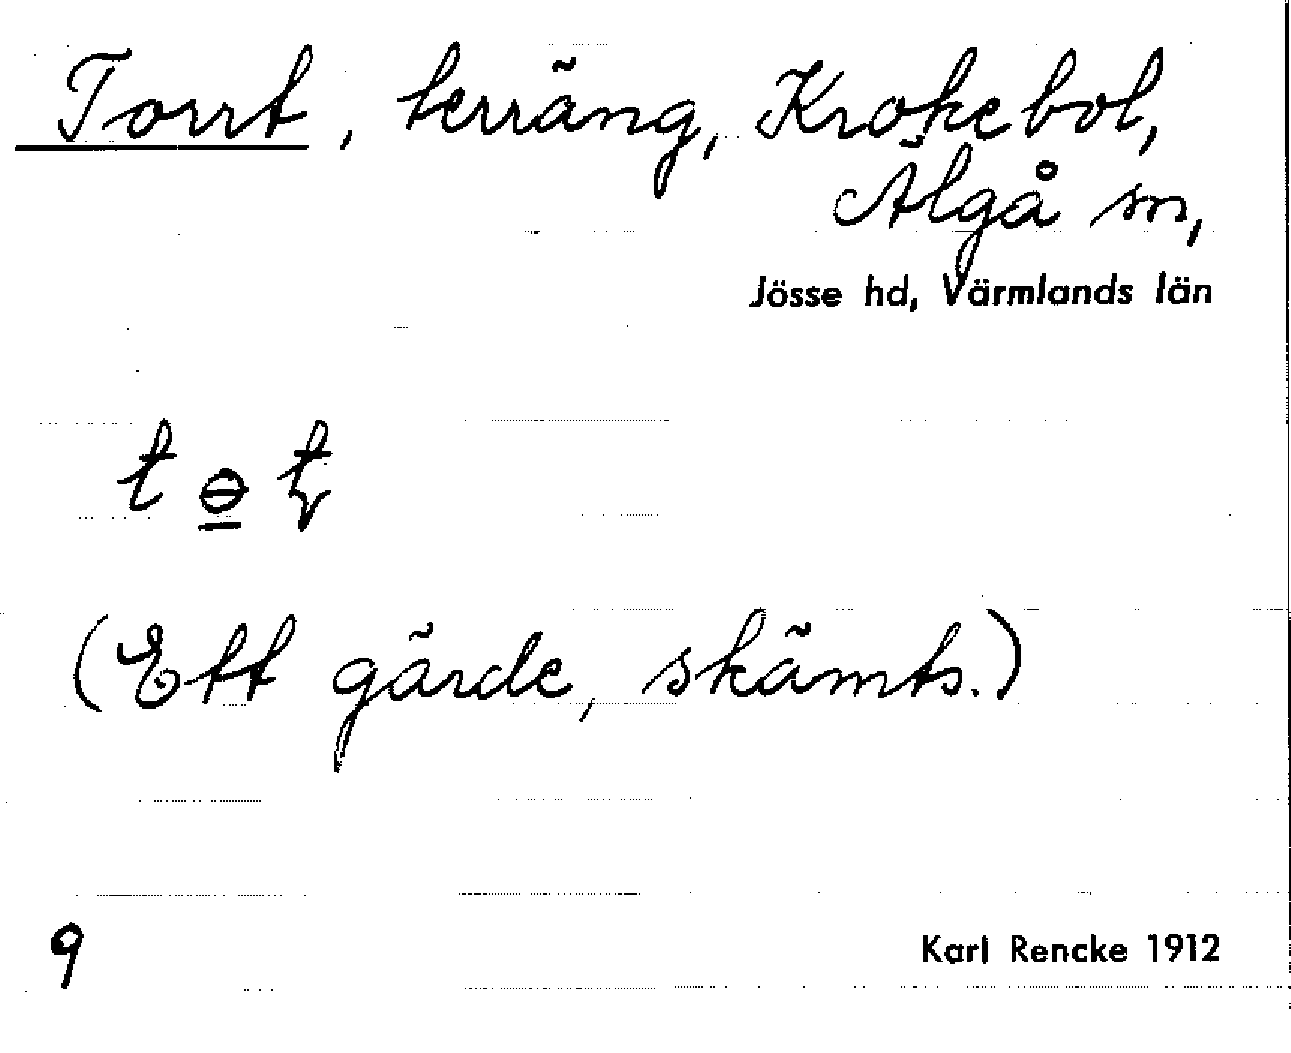 Torrt, terräng, Krokebol,
Älgå sn,
Jösse hd, Värmlands län
t ɵ ʈ
(Ett gärde, skämts.)
9
Karl Rencke 1912